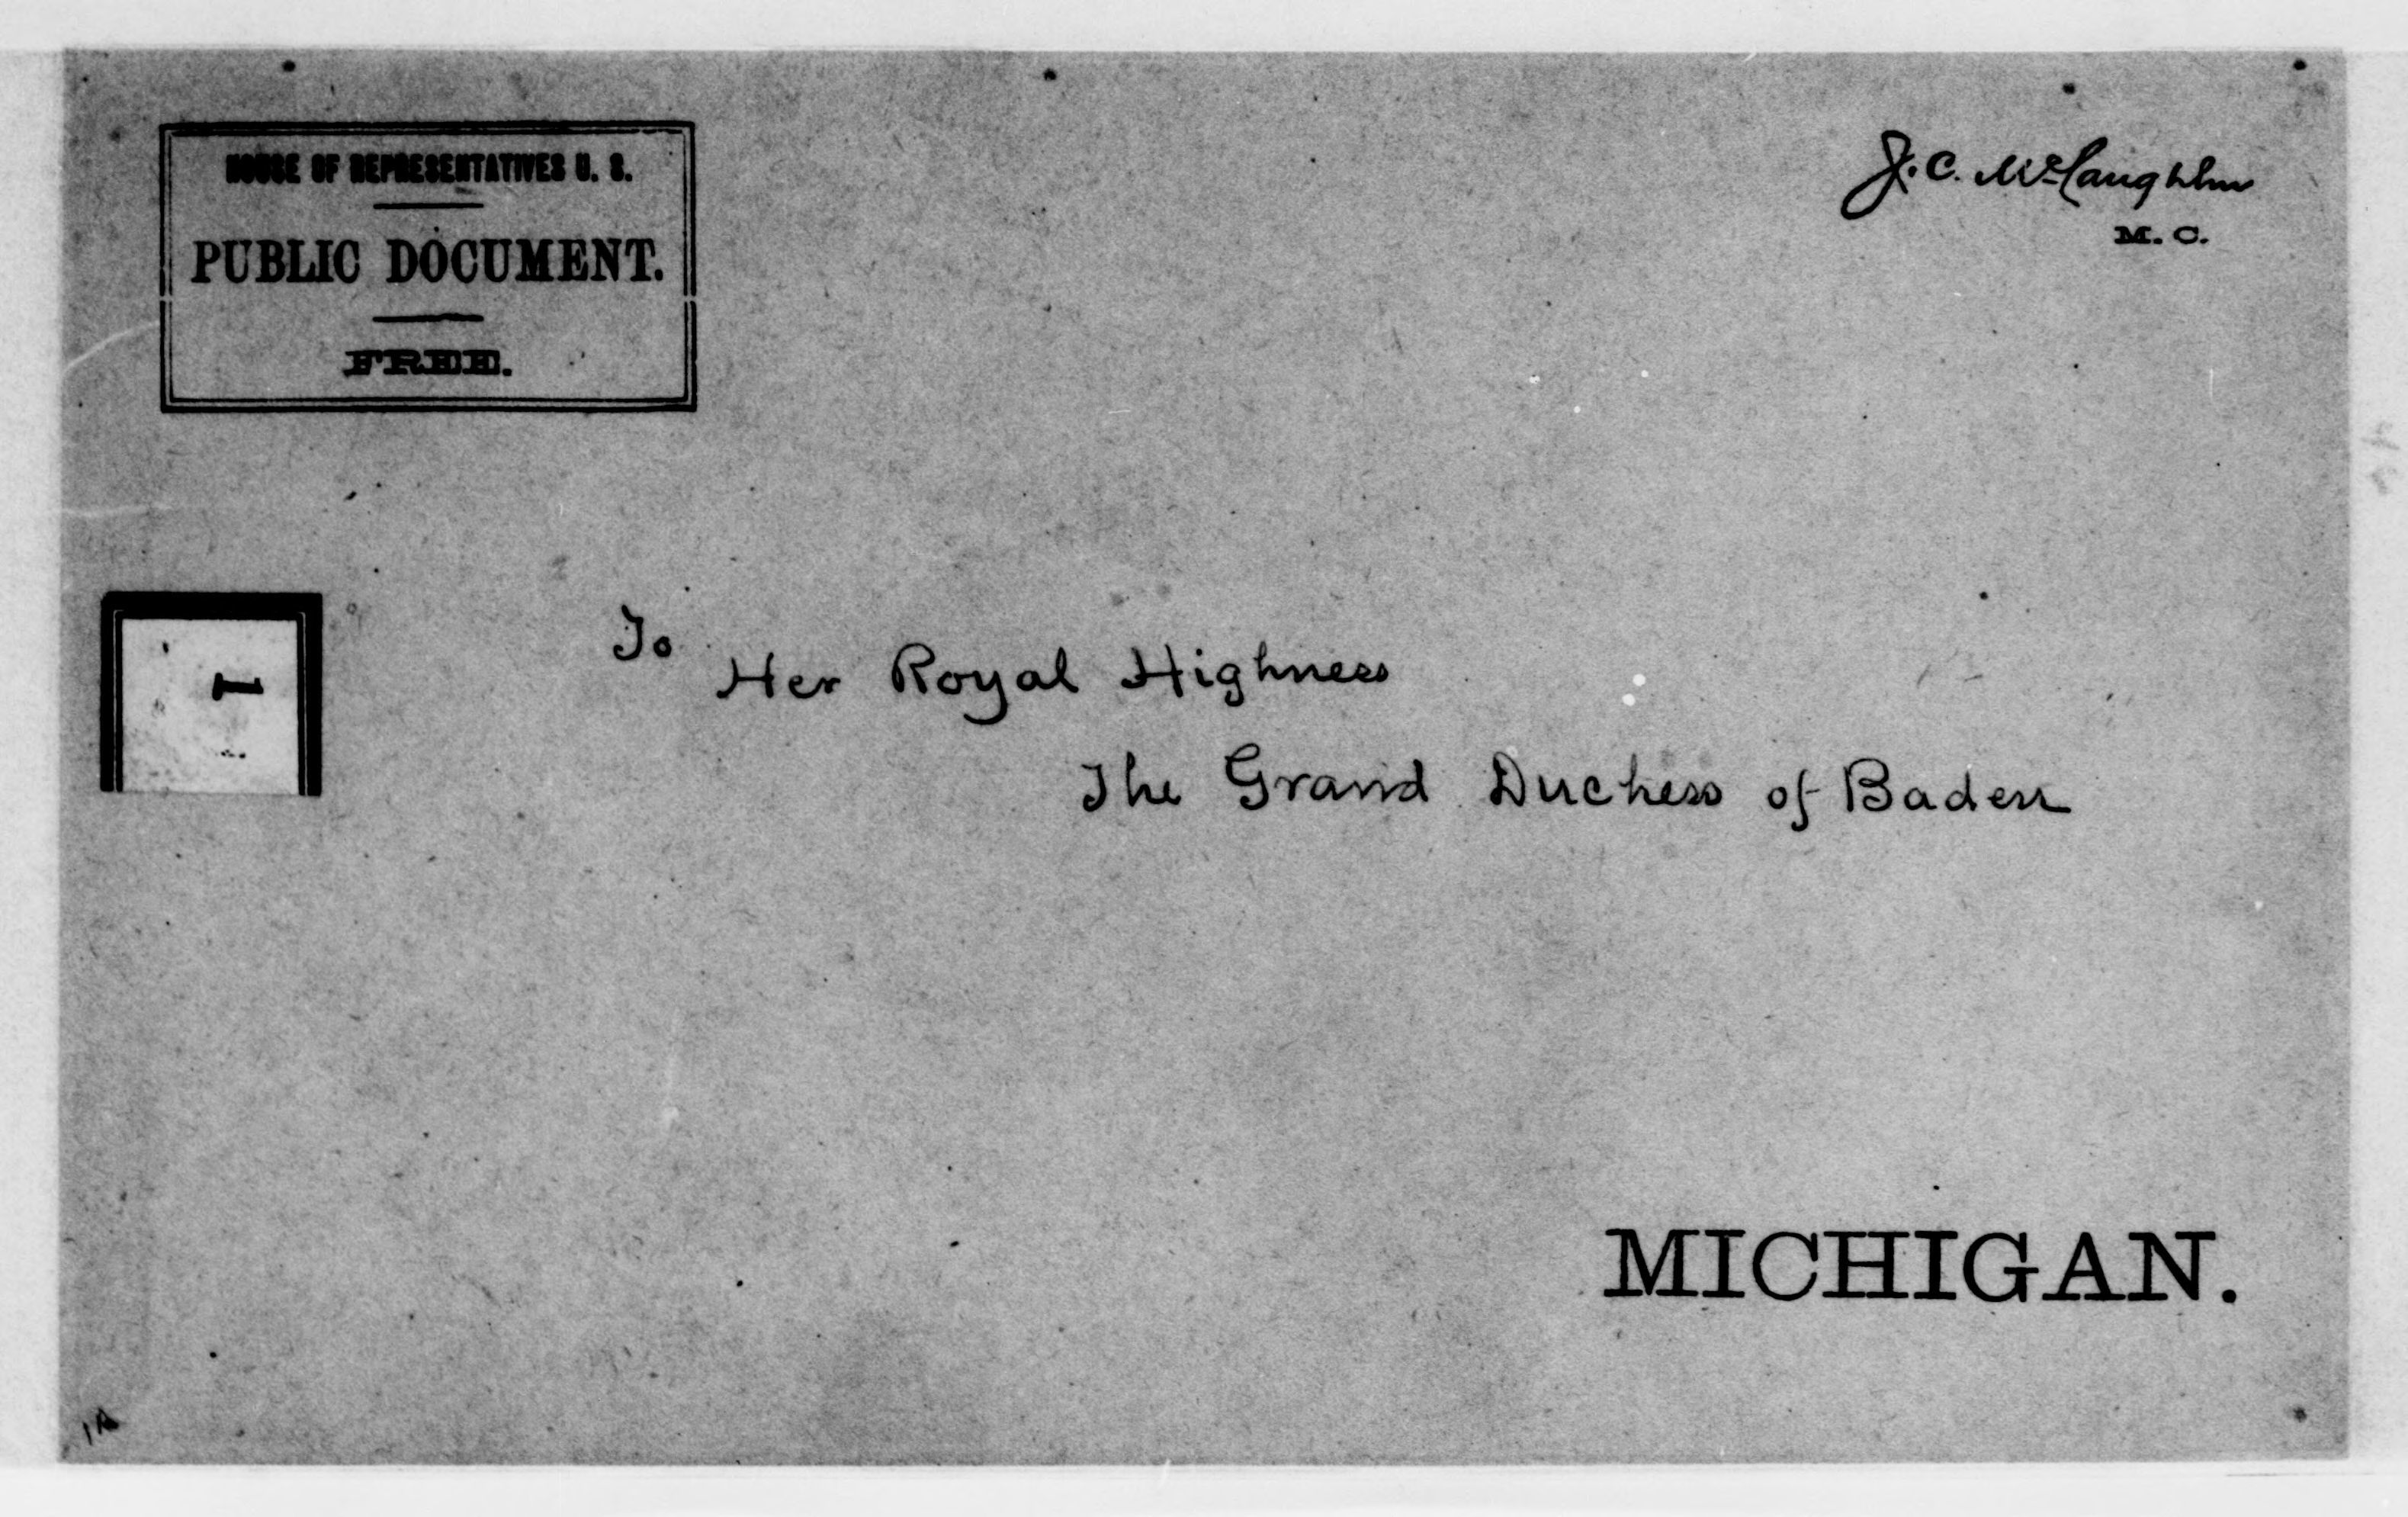 HOUSE OF REPRESENTATIVES U. S.
PUBLIC DOCUMENT.
FREE.
J. C. McLaughlin
M. C.
To
Her Royal Highness
The Grand Duchess of Baden
MICHIGAN.
1A